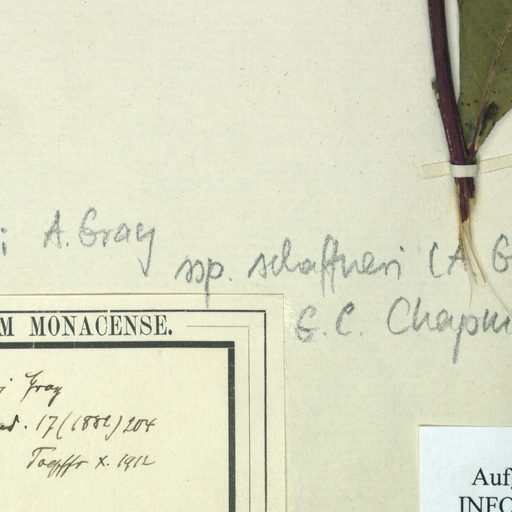 i A. Gray
ssp. schaffneri (A. G
G. C. Chapm
M MONACENSE.
i Gray
ad. 17 (1882) 204
Toepffr X. 1912
Aufg
INFO